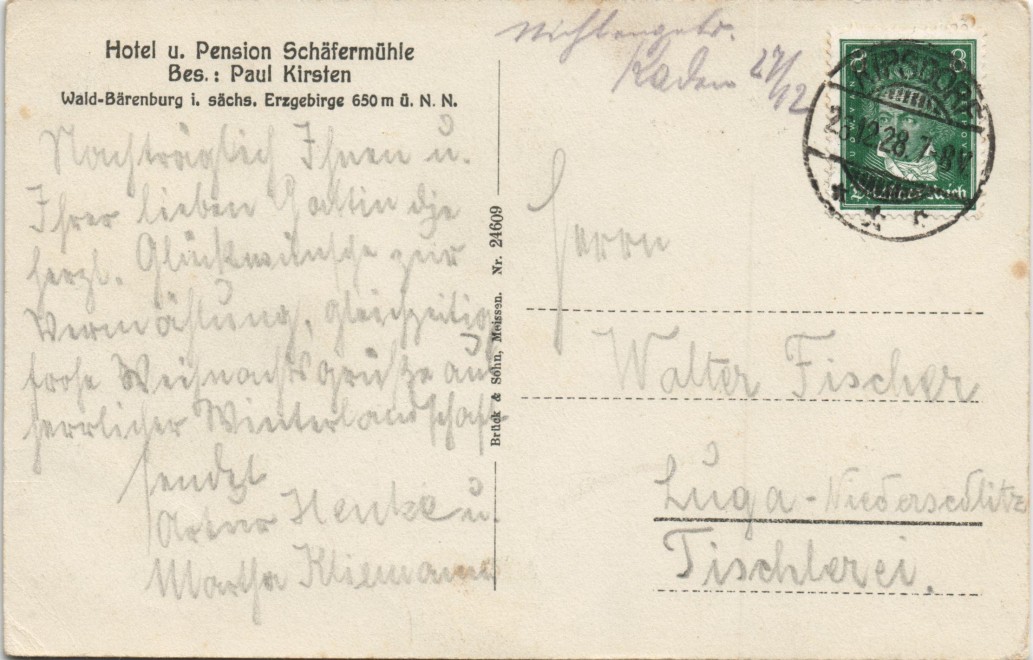 Hotel u. Pension Schäfermühle
Bes.: Paul Kirsten
Wald-Bärenburg i. sächs. Erzgebirge 650 m ü. N. N.
Nachträglich Ihnen u.
Ihrer lieben Gattin die
herzl. Glückwünsche zur
Vermählung, gleichzeitig
frohe Weihnachtsgrüße aus
herrlicher Winterlandschaft
sendet
Artur Henke u.
Martha Kliemann
Brück & Sohn, Meissen. Nr. 24609
27/12
8 8
KIPSDORF
12.28.7-8V
Deutsches Reich
Herrn
Walter Fischer
Luga-Niedersedlitz
Tischlerei.